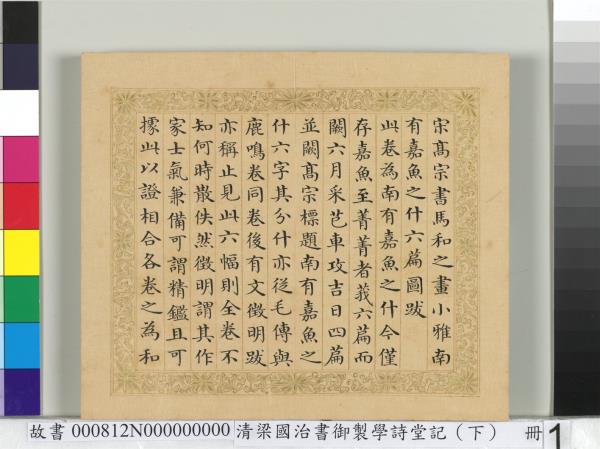 宋髙宗書馬和之畫小雅南
有嘉魚之什六篇圖跋
此卷為南有嘉魚之什今僅
存嘉魚至菁菁者莪六篇而
闕六月采芑車攻吉日四篇
並闕髙宗標題南有嘉魚之
什六字其分什亦從毛傳與
鹿鳴卷同卷後有文徵明跋
亦稱止見此六幅則全卷不
知何時散佚然徵明謂其作
家士氣兼備可謂精鑑且可
據此以證相合各卷之為和
故書 000812N000000000 清梁國治書御製學詩堂記（下） 冊 1